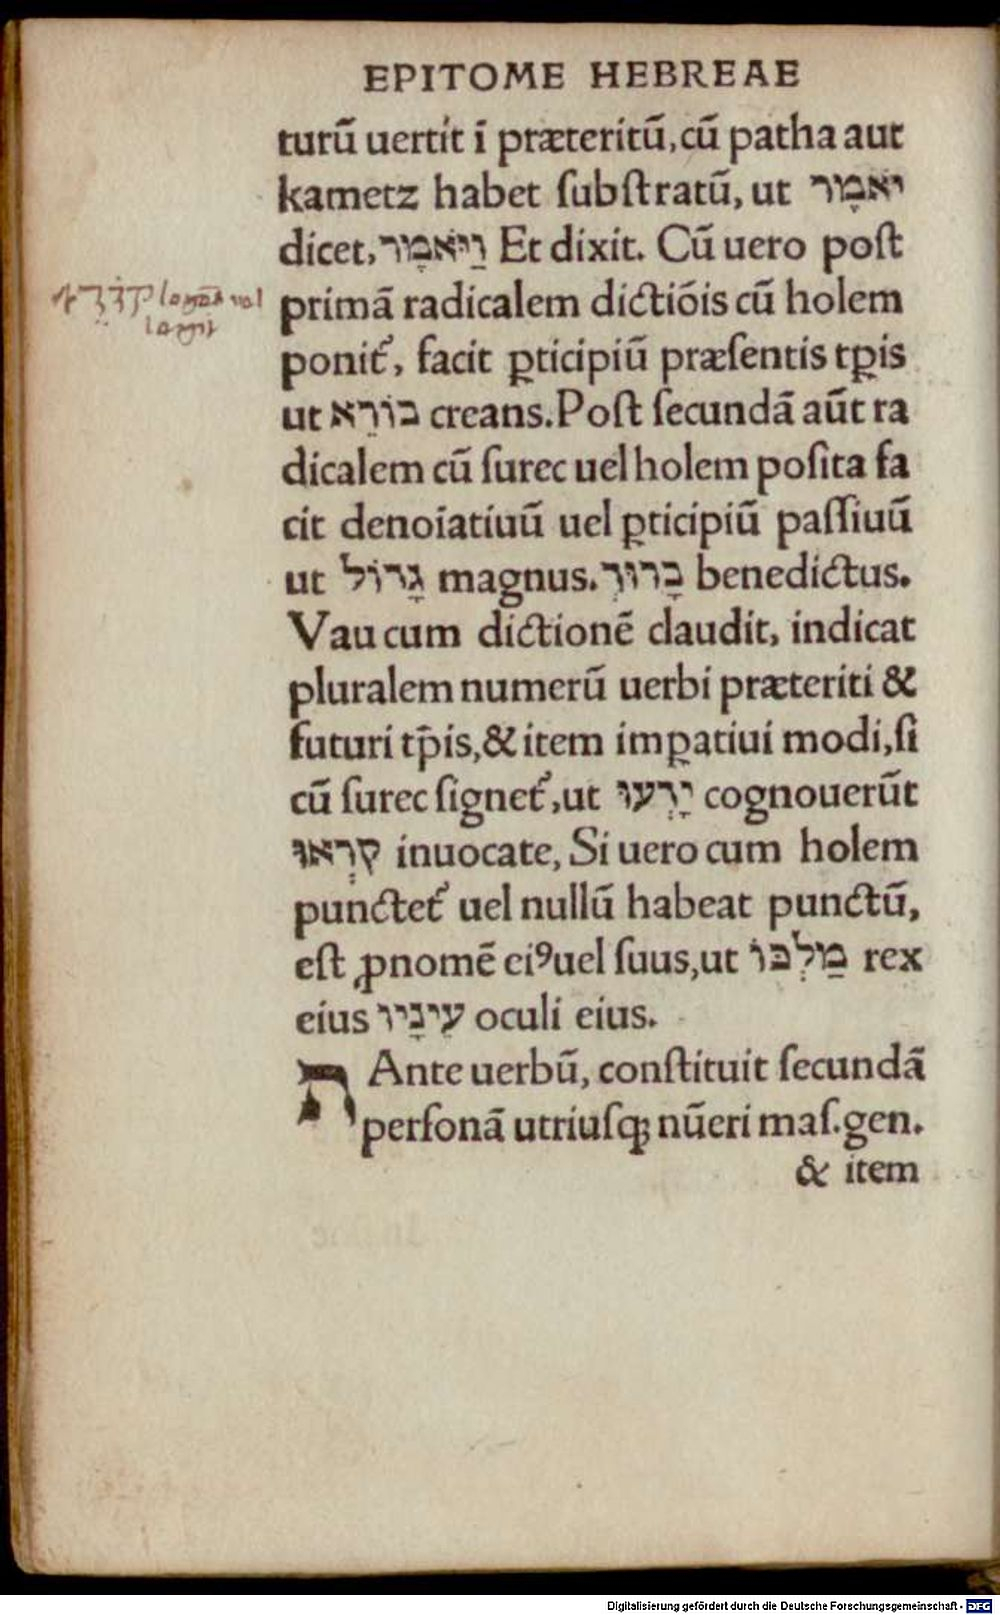 EPITOME HEBREAE
turũ uertit ĩ præteritũ, cũ patha aut
kametz habet ſubſtratũ, ut יֹאמָר
dicet, וַיֹּאמָר Et dixit. Cũ uero poſt
primã radicalem dictiõis cũ holem
ponit᷒, facit ꝑticipiũ præſentis tꝑis
ut בוֹרֵא creans. Poſt ſecundã aũt ra
dicalem cũ ſurec uel holem poſita fa
cit denoĩatiuũ uel ꝑticipiũ paſſiuũ
ut גָּרוֹל magnus. בָּרוּךְ benedictus.
Vau cum dictionẽ claudit, indicat
pluralem numerũ uerbi præteriti &
futuri tp̃is, & item imꝑatiui modi, ſi
cũ ſurec ſignet᷒, ut יָרְעוּ cognouerũt
קִרְאוּ inuocate, Si uero cum holem
punctet᷒ uel nullũ habeat punctũ,
eſt ꝓnomẽ eiꝰ uel ſuus, ut מַלְכּוֹ rex
eius עֵינָיו oculi eius.
ת Ante uerbũ, conſtituit ſecundã
perſonã utriuſqꝫ nũeri maſ. gen.
& item
Digitalisierung gefördert durch die Deutsche Forschungsgemeinschaft - DFG